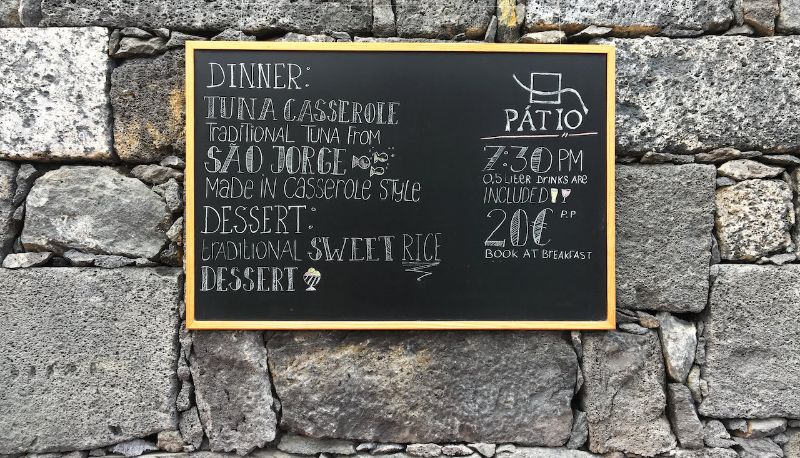 DINNER:
TUNA CASSEROLE
TRADITIONAL TUNA FROM
SÃO JORGE
MADE IN CASSEROLE STYLE
DESSERT:
TRADITIONAL SWEET RICE
DESSERT
PÁTIO
7:30 PM
0,5 LITER DRINKS ARE
INCLUDED
20€ P.P
BOOK AT BREAKFAST